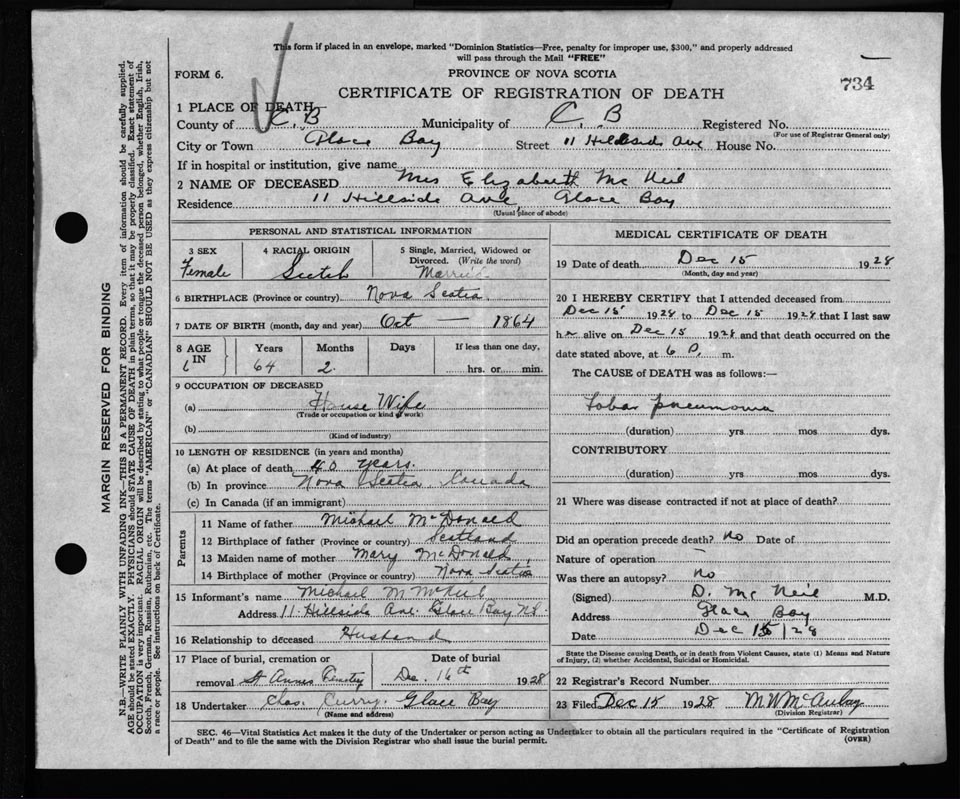 This form if placed in an envelope, marked "Dominion Statistics—Free, penalty for improper use, $300," and properly addressed
will pass through the Mail "FREE"
FORM 6.
PROVINCE OF NOVA SCOTIA
734
CERTIFICATE OF REGISTRATION OF DEATH
1 PLACE OF DEATH
County of C. B Municipality of C. B Registered No.
(For use of Registrar General only)
City or Town Glace Bay Street 11 Hillside Ave House No.
If in hospital or institution, give name
2 NAME OF DECEASED Mrs Elizabeth Mc Neil
Residence 11 Hillside Ave, Glace Bay
(Usual place of abode)
PERSONAL AND STATISTICAL INFORMATION
3 SEX 4 RACIAL ORIGIN 5 Single, Married, Widowed or
Divorced. (Write the word)
Female Scotch Married
6 BIRTHPLACE (Province or country) Nova Scotia
7 DATE OF BIRTH (month, day and year) Oct — 1864
8 AGE IN Years Months Days If less than one day,
64 2 hrs. or min.
9 OCCUPATION OF DECEASED
(a) House Wife
(Trade or occupation or kind of work)
(b)
(Kind of industry)
10 LENGTH OF RESIDENCE (in years and months)
(a) At place of death 40 years.
(b) In province Nova Scotia, Canada
(c) In Canada (if an immigrant)
Parents
11 Name of father Michael McDonald
12 Birthplace of father (Province or country) Scotland
13 Maiden name of mother Mary McDonald
14 Birthplace of mother (Province or country) Nova Scotia
15 Informant's name Michael M McNeil
Address 11 Hillside Ave. Glace Bay N.S.
16 Relationship to deceased Husband
17 Place of burial, cremation or Date of burial
removal St Annes Cemetry Dec. 16th 1928
18 Undertaker Chas. Curry. Glace Bay
(Name and address)
MEDICAL CERTIFICATE OF DEATH
19 Date of death Dec 15 1928
(Month, day and year)
20 I HEREBY CERTIFY that I attended deceased from
Dec 15 1928 to Dec 15 1928 that I last saw
her alive on Dec 15 1928 and that death occurred on the
date stated above, at 6 P. m.
The CAUSE of DEATH was as follows:—
Lobar pneumonia
(duration) yrs mos dys.
CONTRIBUTORY
(duration) yrs mos dys.
21 Where was disease contracted if not at place of death?
Did an operation precede death? No Date of
Nature of operation —
Was there an autopsy? No
(Signed) D. Mc Neil M.D.
Address Glace Bay
Date Dec 15/28
State the Disease causing Death, or in death from Violent Causes, state (1) Means and Nature
of Injury, (2) whether Accidental, Suicidal or Homicidal.
22 Registrar's Record Number
23 Filed Dec 15 1928 M.W. McAulay
(Division Registrar)
SEC. 46—Vital Statistics Act makes it the duty of the Undertaker or person acting as Undertaker to obtain all the particulars required in the "Certificate of Registration
of Death" and to file the same with the Division Registrar who shall issue the burial permit. (OVER)
MARGIN RESERVED FOR BINDING
N.B.—WRITE PLAINLY WITH UNFADING INK—THIS IS A PERMANENT RECORD. Every item of information should be carefully supplied.
AGE should be stated EXACTLY. PHYSICIANS should STATE CAUSE OF DEATH in plain terms, so that it may be properly classified. Exact statement of
OCCUPATION is very important. RACIAL ORIGIN will be described by stating to what people or tongue the deceased person belonged, whether English, Irish,
Scotch, French, German, Russian, Ruthenian, etc. The terms "AMERICAN" or "CANADIAN" SHOULD NOT BE USED as they express citizenship but not
a race or people. See instructions on back of Certificate.